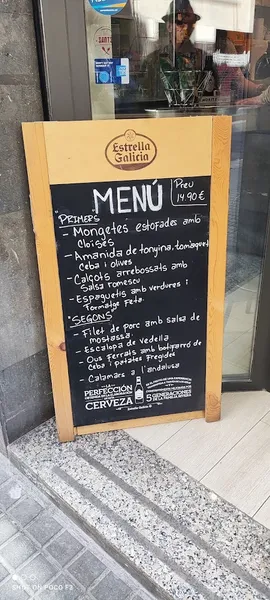 Estrella
Galicia
MENÚ
Preu
14.90 €
PRIMERS
- Mongetes estofades amb
Cloïsses
- Amanida de tonyina, tomàquet
Ceba i olives
- Calçots arrebossats amb
Salsa romescu
- Espaguetis amb verdures i
Formatge Feta
"SEGONS"
- Filet de porc amb salsa de
mostassa
- Escalopa de vedella
- Ous Ferrats amb botifarró de
Ceba i patates Fregides
- Calamars a l'andalusa
PERFECCIÓN
CERVEZA
5 GENERACIONES
SHOT ON POCO F3